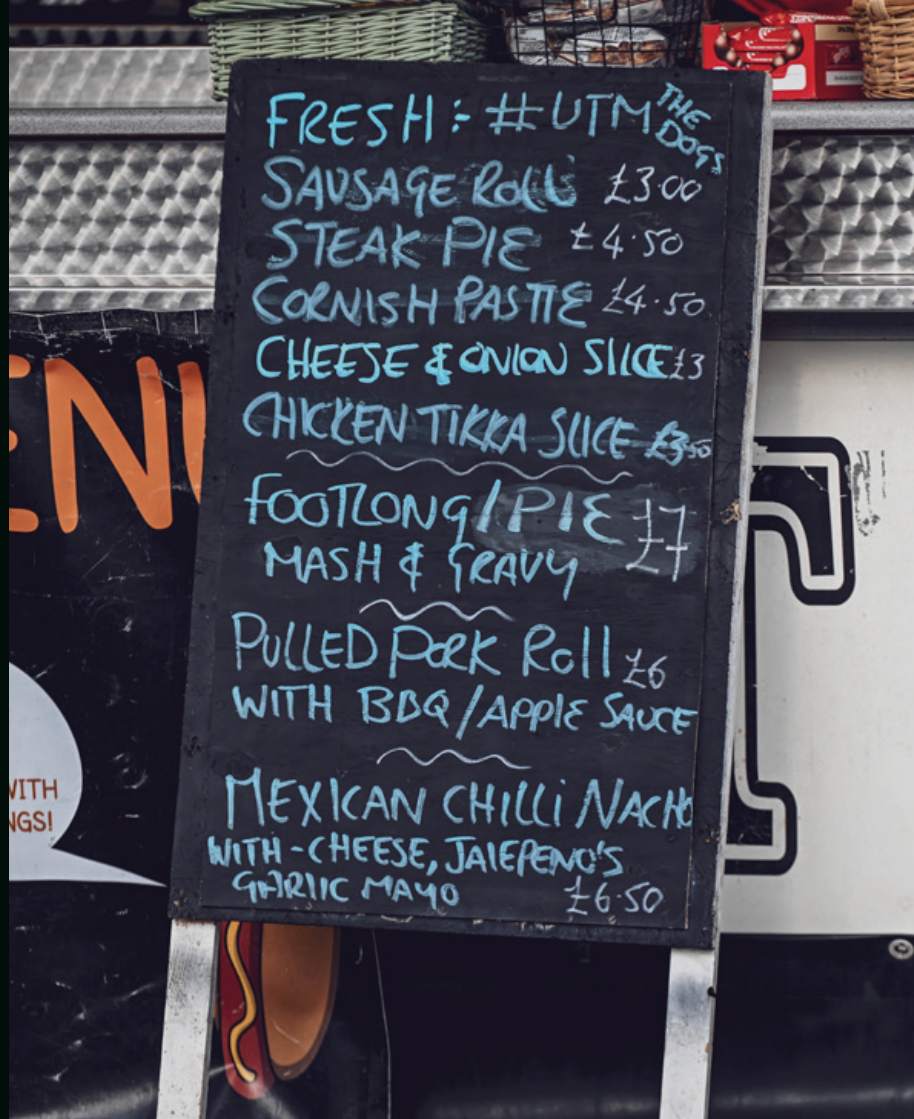 FRESH: #UTM THE DOGS
SAUSAGE Roll £3.00
STEAK PIE £4.50
CORNISH PASTIE £4.50
CHEESE & ONION SLICE £3
CHICKEN TIKKA SLICE £3.50
FOOTLONG/PIE £7
MASH & GRAVY
PULLED PORK Roll £6
WITH BBQ/APPLE SAUCE
MEXICAN CHILLi NACHO
WITH-CHEESE, JALEPENO'S
GARLIC MAYO £6.50
EN
WITH
NGS!